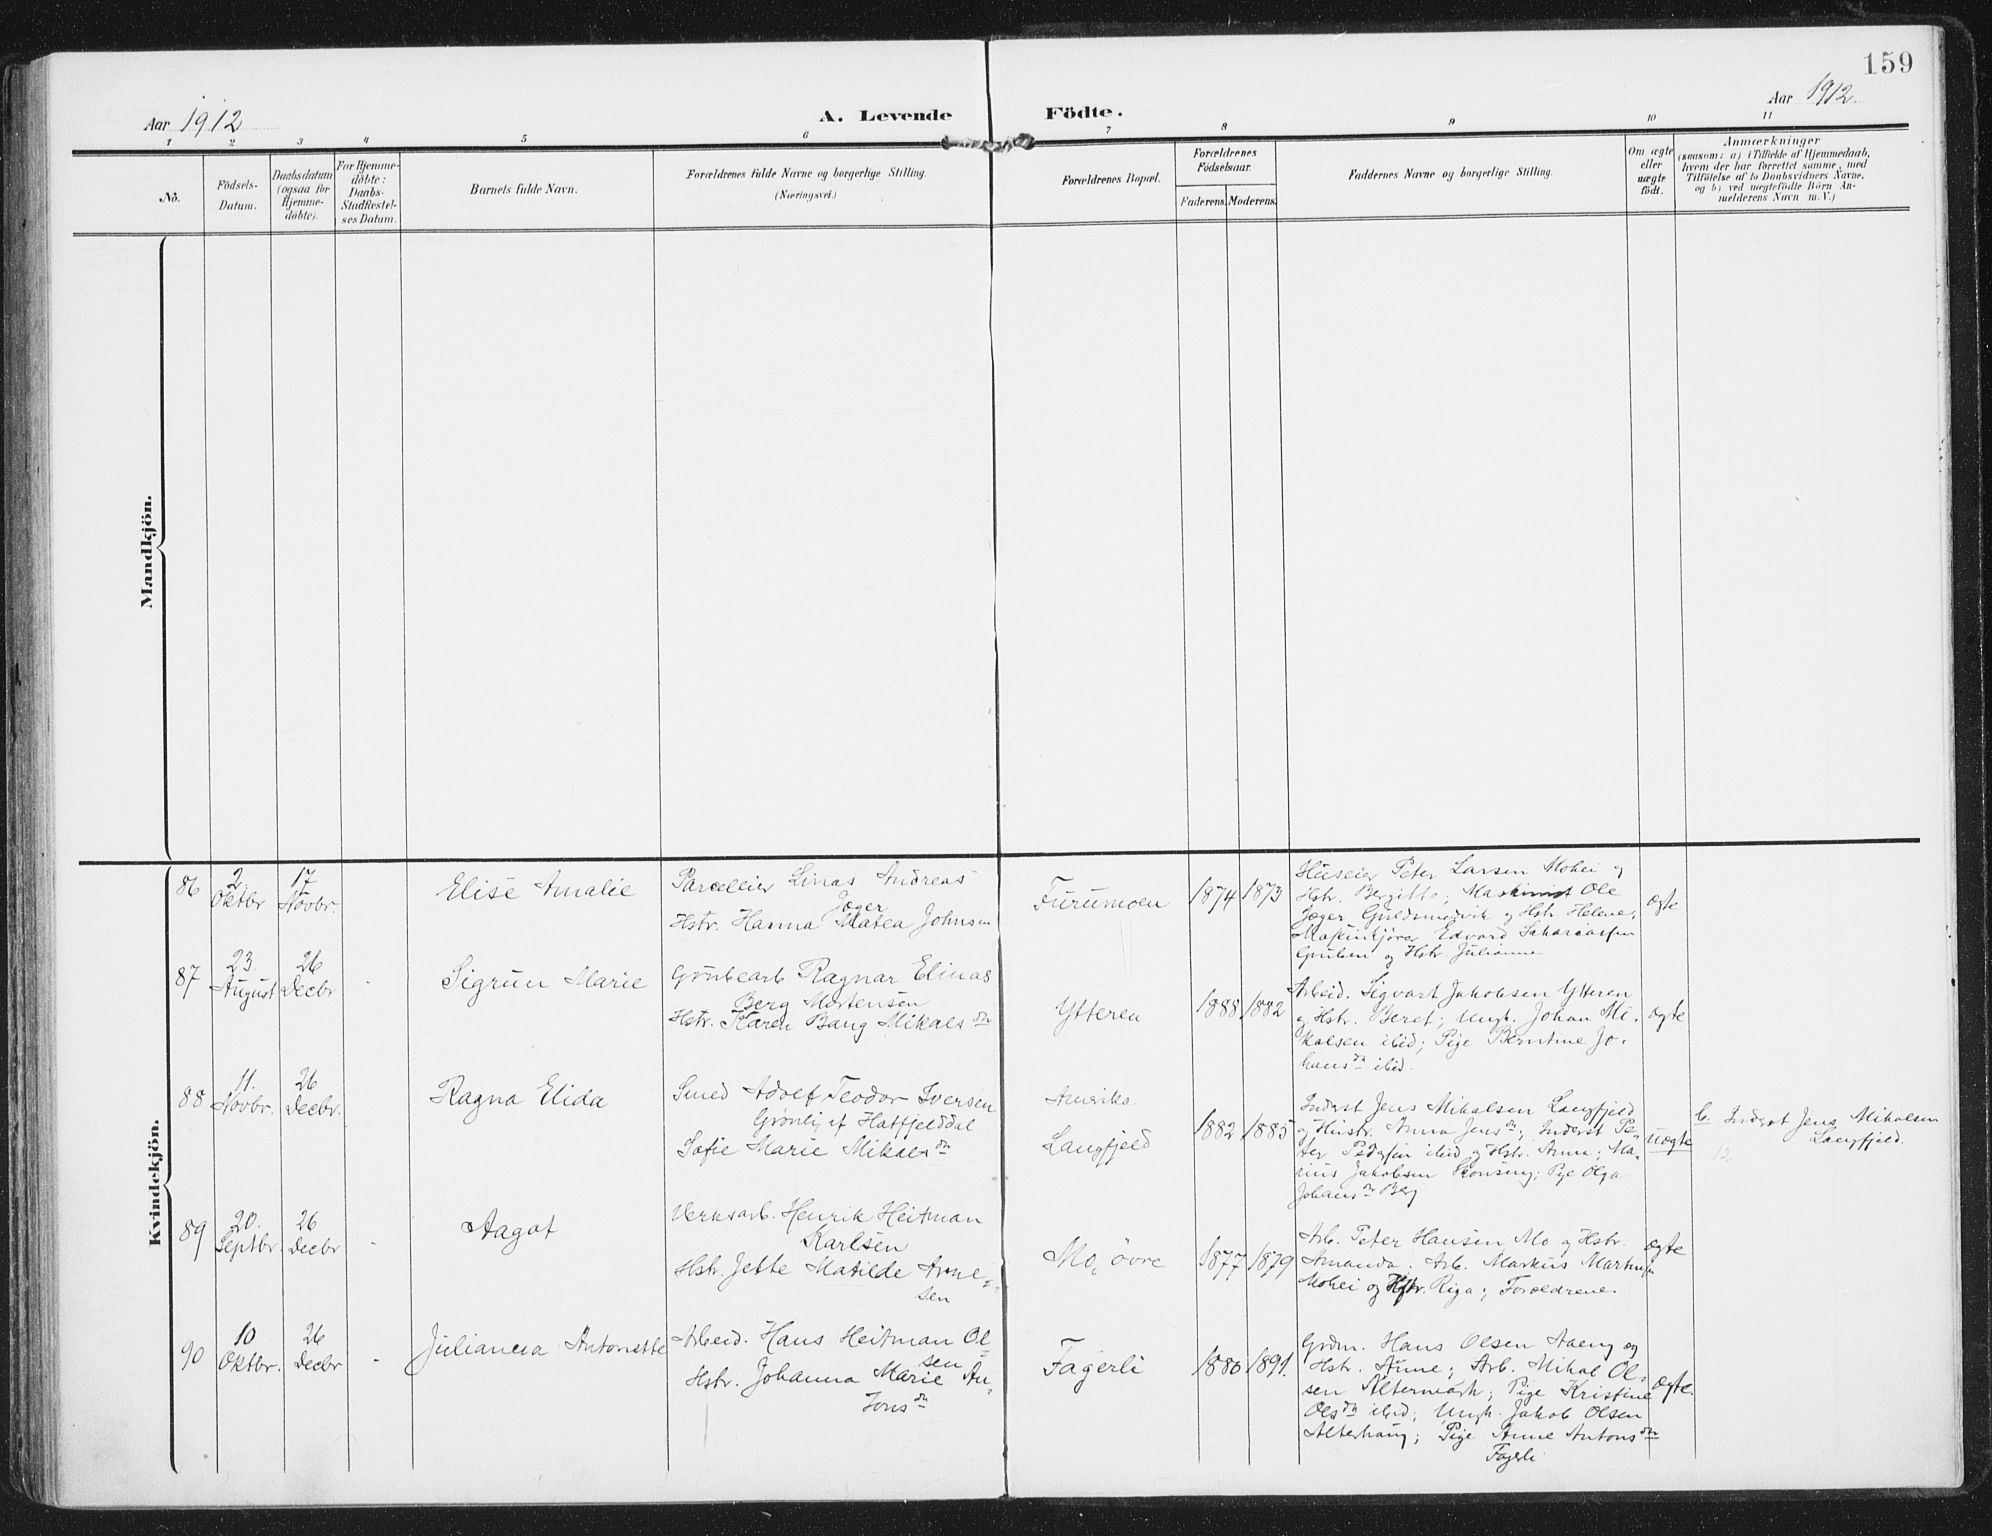 159
Aar 1912
A. Levende Födte.
Aar 1912
1 2 3 4 5 6 7 8 9 10 11
No.
Födsels-
Datum.
Daabsdatum
(ogsaa for
Hjemme-
döbte).
For Hjemme-
döbte:
Daabs-
Stadfæstel-
ses Datum.
Barnets fulde Navn.
Forældrenes fulde Navne og borgerlige Stilling.
(Næringsvei.)
Forældrenes Bopæl.
Forældrenes
Födselsaar.
Faderens. Moderens.
Faddernes Navne og borgerlige Stilling.
Om ægte
eller
uægte
födt.
Anmærkninger
(saasom: a) i Tilfælde af Hjemmedaab,
hvem der har forrettet samme, med
Tilföielse af to Daabsvidners Navne,
og b) ved uægtefödte Börn An-
melderens Navn m. V.)
Mandkjön.
Kvindekjön.
86
2
Oktbr
17
Novbr.
Elise Amalie
Parcelleier Linas Andreas
Jæger
Hstr. Hanna Matea Johnsen
Furumoen
1874
1873
Huseier Peter Larsen Mohei og
Hstr. Bergitte; Maskinist Ole
Jæger Guldsmedvik og Hstr. Helene;
Maskinkjører Edvard Sakariassen
Gruben og Hstr Julianne
ægte
87
23
August
26
Decbr
-
Sigrun Marie
Grubearb Ragnar Elinas
Berg Mortensen
Hstr. Karen Bang Mikals dtr
Ytteren
1888
1882
Arbeid. Sigvart Jakobsen Ytteren
og Hstr. Beret; Ungk. Johan Mi-
kalsen ibid; Pige Berntine Jo-
hans dtr ibid.
ægte
88
11.
Novbr.
26
Decbr.
Ragna Elida
Smed Adolf Teodor Iversen
Grønli, af Hatfjelddal
Sofie Marie Mikals dtr
Amerika
Langfjeld
1882
1885
Inderst Jens Mikalsen Langfjeld
og Hustr. Anna Jens dtr; Inderst Pe-
ter Pedersen ibid og Hstr. Anna; Ma-
rius Jakobsen Skonseng; Pige Olga
Johans dtr Berg
uægte
b. Inderst Jens Mikalsen
Langfjeld.
12
89
20.
Septbr.
26
Decbr
-
Aagot
Verksarb. Henrik Heitman
Karlsen
Hstr. Jette Matilde Arne-
sen
Mo, övre
1877
1879
Arb. Peter Hansen Mo og Hstr.
Amanda; Arb. Markus Martinsen
Mohei og Hstr. Riga; Forældrene.
ægte
90
10
Oktbr.
26
Decbr
-
Julianna Antonette
Arbeid. Hans Heitman Ol-
sen
Hstr. Johanna Marie An-
tons dtr
Fagerli
1880
1891.
Grdm. Hans Olsen Aaeng og
Hstr. Anne; Arb. Mikal Ol-
sen Altermark; Pige Kristine
Ols dtr ibid; Ungk. Jakob Olsen
Alterhaug; Pige Anne Antons dtr
Fagerli
ægte.